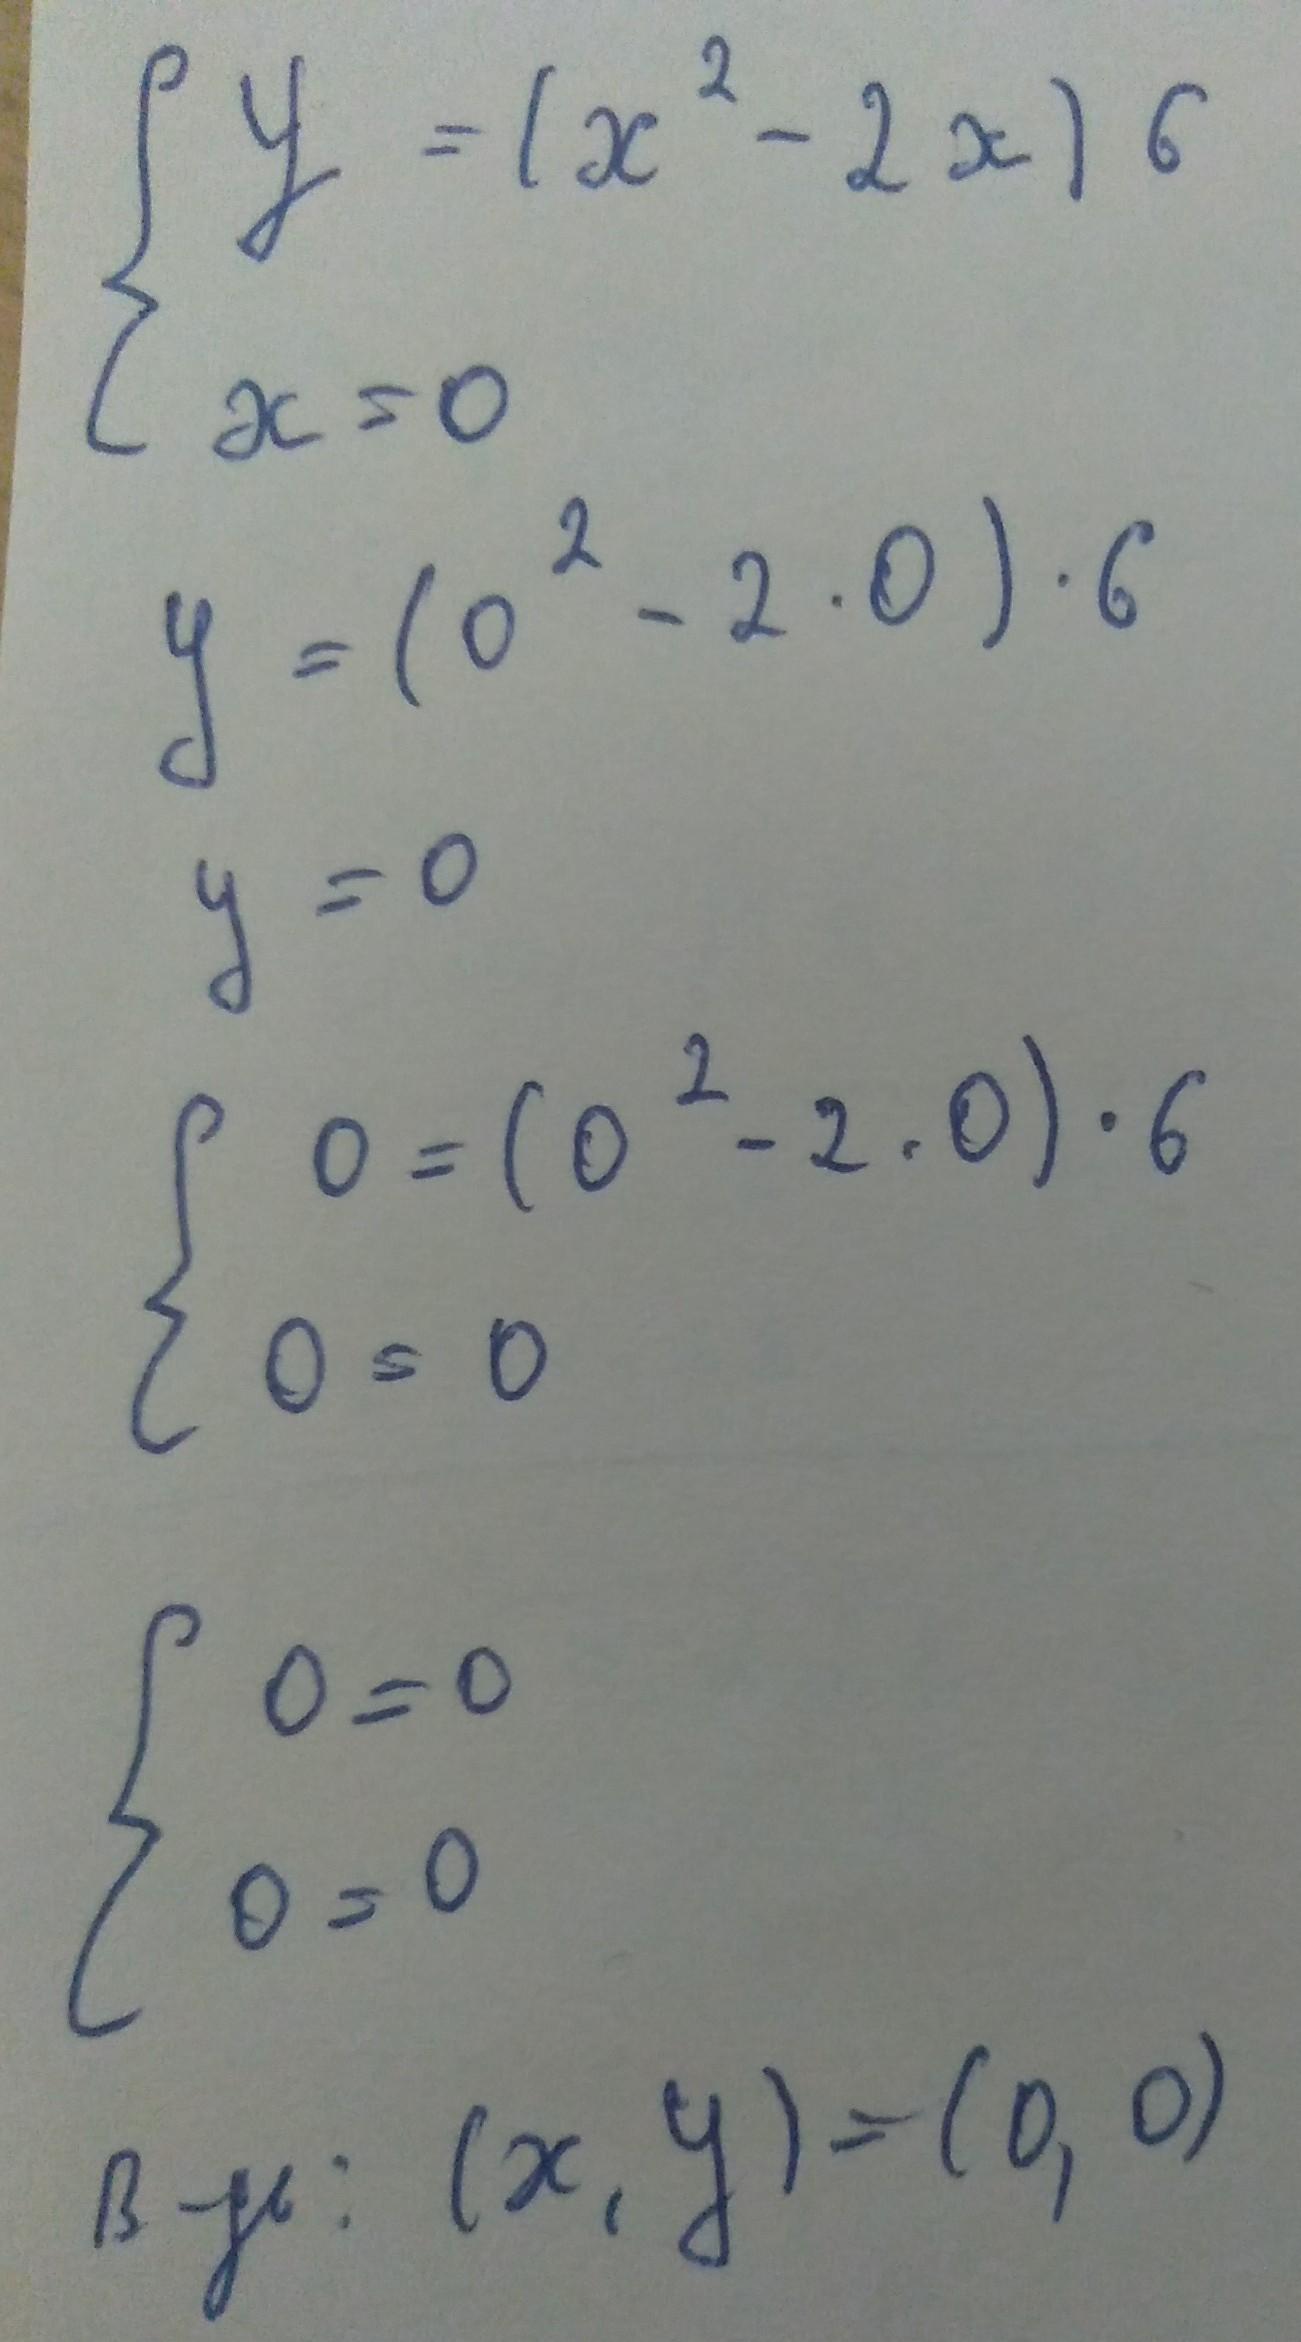 { y = (x² - 2x) 6
x = 0
y = (0² - 2 · 0) · 6
y = 0
{ 0 = (0² - 2 · 0) · 6
0 = 0
{ 0 = 0
0 = 0
(x, y) = (0, 0)